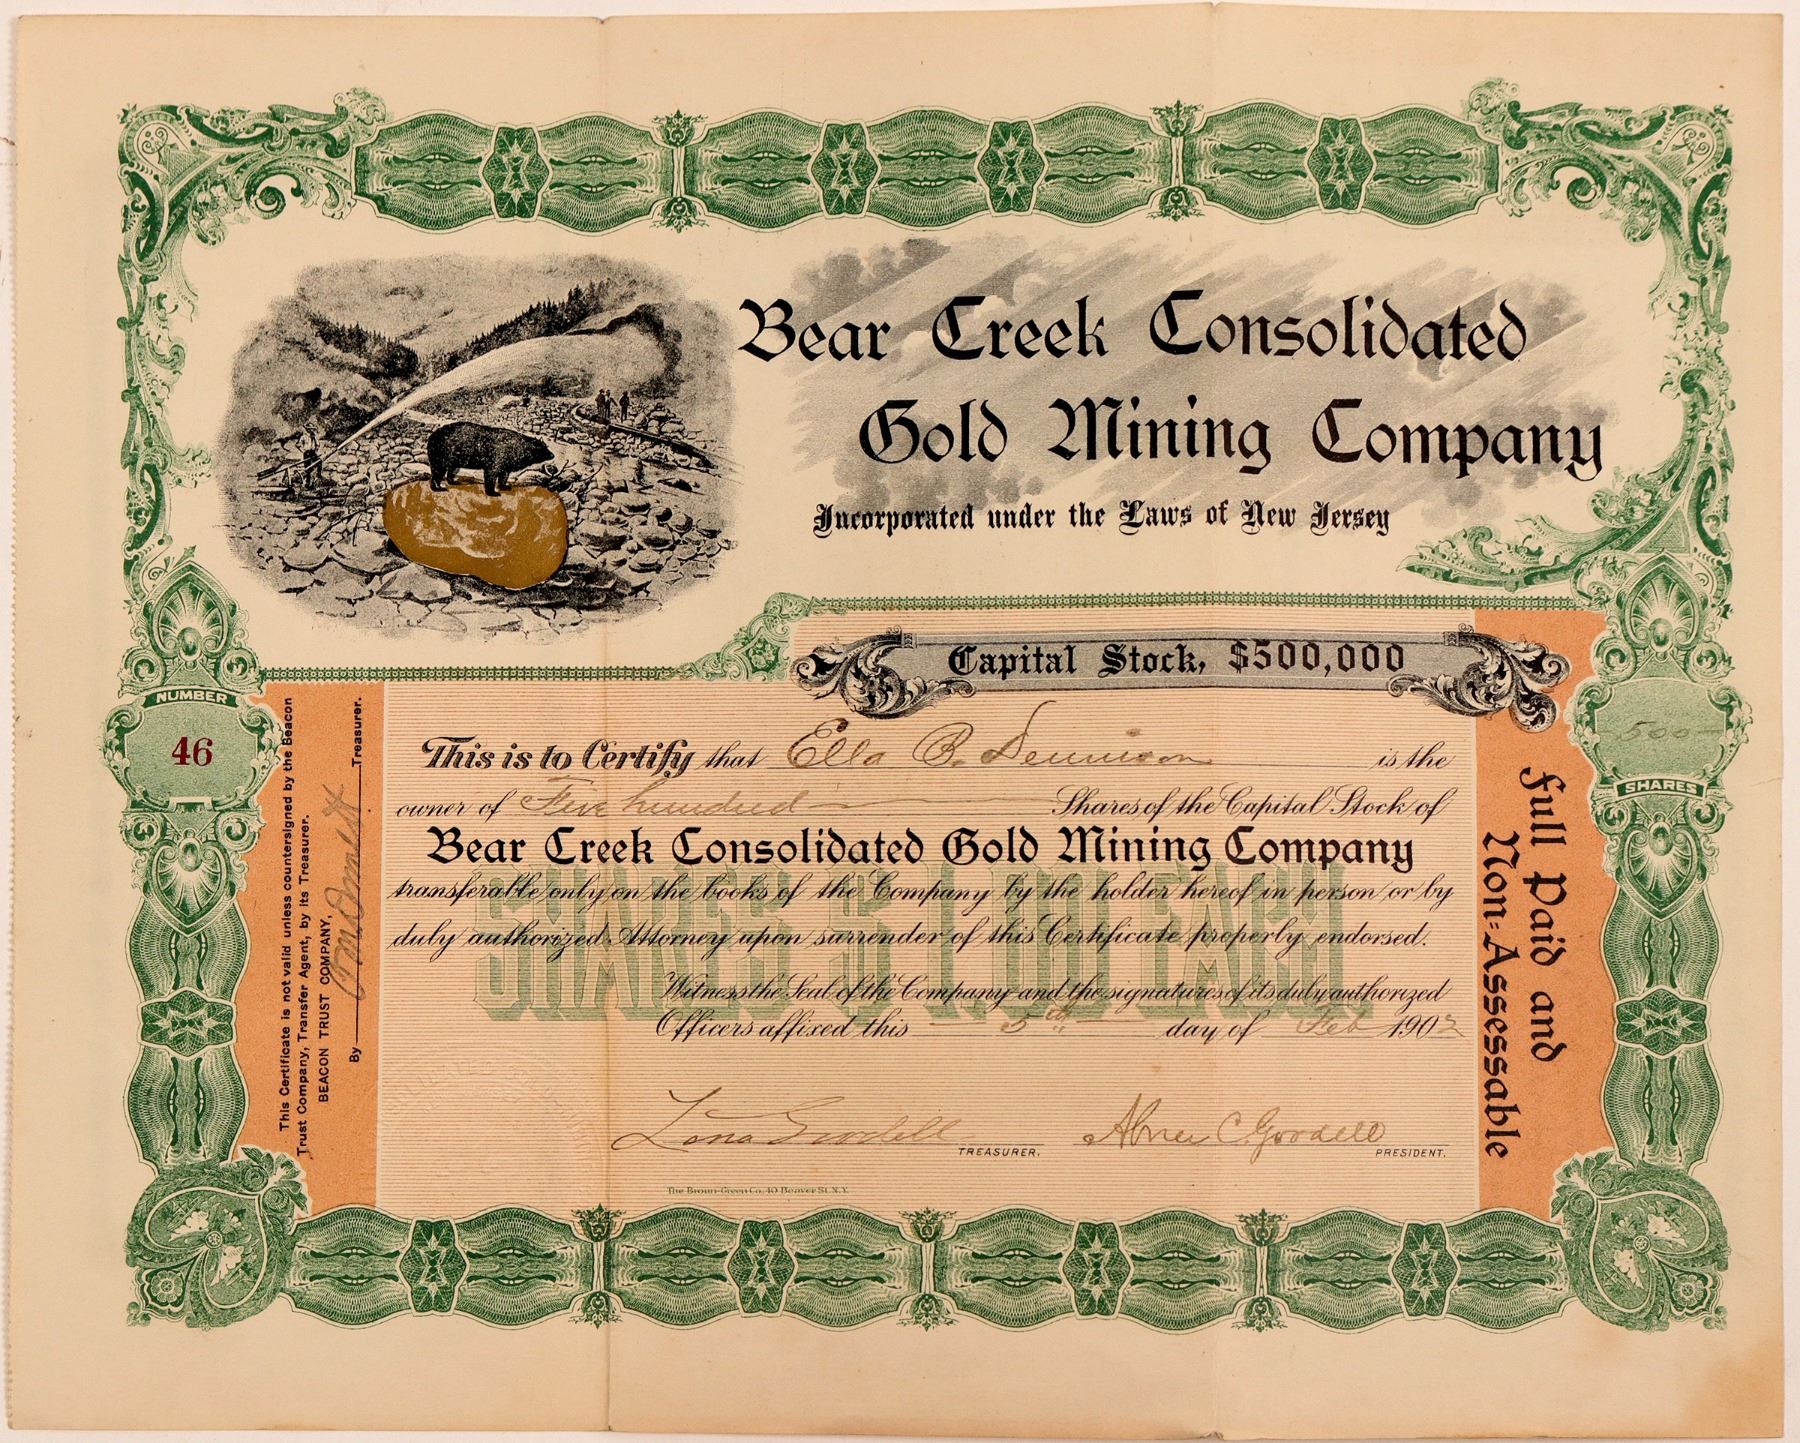 Bear Creek Consolidated
Gold Mining Company
Incorporated under the Laws of New Jersey
Capital Stock, $500,000
NUMBER
46
500
SHARES
This is to Certify that Ella B. Dennison is the
owner of Five hundred Shares of the Capital Stock of
Bear Creek Consolidated Gold Mining Company
transferable only on the books of the Company by the holder hereof in person or by
duly authorized Attorney upon surrender of this Certificate properly endorsed.
SHARES $1.00 EACH
Witness the Seal of the Company and the signatures of its duly authorized
Officers affixed this 5th day of Feb 1902
Lona Goodell
TREASURER.
Abner C. Goodell
PRESIDENT.
The Broun-Green Co. 40 Beaver St. N.Y.
This Certificate is not valid unless countersigned by the Beacon
Trust Company, Transfer Agent, by its Treasurer.
BEACON TRUST COMPANY,
By Treasurer.
Full Paid and
Non-Assessable